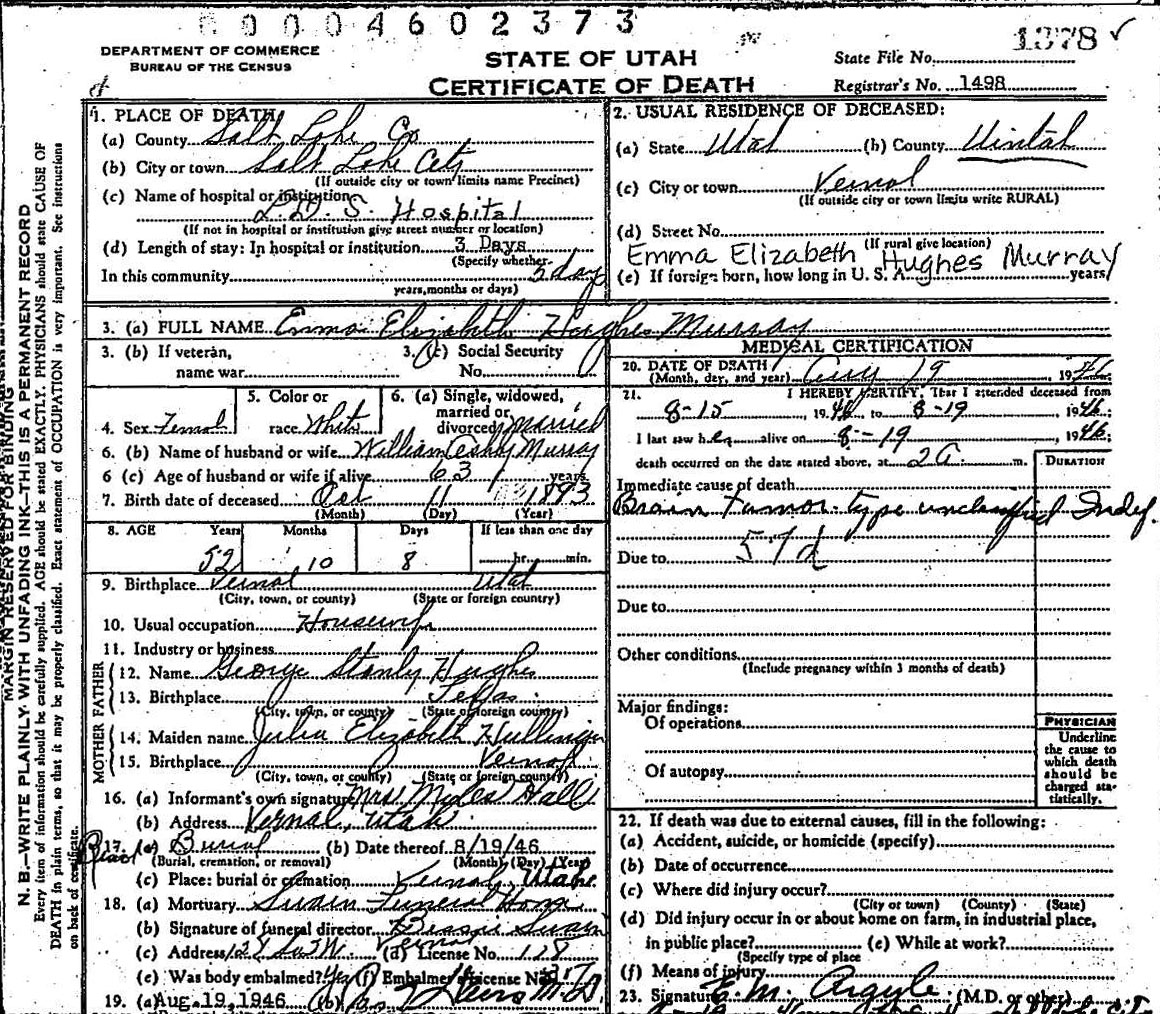 0004602373
DEPARTMENT OF COMMERCE
BUREAU OF THE CENSUS
STATE OF UTAH
CERTIFICATE OF DEATH
State File No. 1378 ✓
Registrar's No. 1498
1. PLACE OF DEATH
(a) County Salt Lake Co
(b) City or town Salt Lake City
(If outside city or town limits name Precinct)
(c) Name of hospital or institution
L.D.S. Hospital
(If not in hospital or institution give street number or location)
(d) Length of stay: In hospital or institution 3 Days
(Specify whether
In this community 3 day
years, months or days)
2. USUAL RESIDENCE OF DECEASED:
(a) State Utah (b) County Uintah
(c) City or town Vernal
(If outside city or town limits write RURAL)
(d) Street No.
(If rural give location)
Emma Elizabeth Hughes Murray
(e) If foreign born, how long in U. S. A. years
3. (a) FULL NAME Emma Elizabeth Hughes Murray
3. (b) If veteran, name war
3. (c) Social Security No.
4. Sex Female
5. Color or race White
6. (a) Single, widowed, married or divorced married
6. (b) Name of husband or wife William Ashby Murray
6 (c) Age of husband or wife if alive 63 years
7. Birth date of deceased Oct 11 1893
(Month) (Day) (Year)
8. AGE Years Months Days If less than one day
52 10 8 hr. min.
9. Birthplace Vernal Utah
(City, town, or county) (State or foreign country)
10. Usual occupation Housewife
11. Industry or business
FATHER
12. Name George Stanly Hughes
13. Birthplace Texas
(City, town, or county) (State or foreign country)
MOTHER
14. Maiden name Julia Elizabeth Hullinger
15. Birthplace Vernal
(City, town, or county) (State or foreign country)
16. (a) Informant's own signature Mrs Myles Hall
(b) Address Vernal, Utah
17. (a) Burial (b) Date thereof 8/19/46
(Burial, cremation, or removal) (Month) (Day) (Year)
(c) Place: burial or cremation Vernal, Utah
18. (a) Mortuary Swain Funeral Home
(b) Signature of funeral director Bessie Swain
(c) Address Vernal (d) License No. 118
(e) Was body embalmed? Yes (f) Embalmer's License No. 317
19. (a) Aug. 19, 1946 (b) M.D.
MEDICAL CERTIFICATION
20. DATE OF DEATH
(Month, day, and year) Aug 19 1946
21. I HEREBY CERTIFY, That I attended deceased from
8-15, 1946, to 8-19, 1946;
I last saw her alive on 8-19, 1946;
death occurred on the date stated above, at 2 a. m.
DURATION
Immediate cause of death
Brain tumor-type unclassified Indef.
57d
Due to
Due to
Other conditions
(Include pregnancy within 3 months of death)
Major findings:
Of operations
Of autopsy
PHYSICIAN
Underline
the cause to
which death
should be
charged sta-
tistically.
22. If death was due to external causes, fill in the following:
(a) Accident, suicide, or homicide (specify)
(b) Date of occurrence
(c) Where did injury occur?
(City or town) (County) (State)
(d) Did injury occur in or about home on farm, in industrial place,
in public place? (e) While at work?
(Specify type of place
(f) Means of injury
23. Signature E. M. Argyle (M.D. or other)
MARGIN RESERVED FOR BINDING
N. B.—WRITE PLAINLY WITH UNFADING INK—THIS IS A PERMANENT RECORD
Every item of information should be carefully supplied. AGE should be stated EXACTLY. PHYSICIANS should state CAUSE OF
DEATH in plain terms, so that it may be properly classified. Exact statement of OCCUPATION is very important. See instructions
on back of certificate.